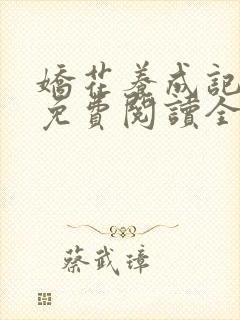 嬌花養成記
免費閱讀全
蔡武璋